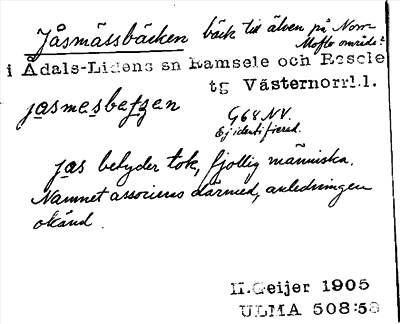 Jåsmässbäcken bäck till älven på Norr-
Mofloområde:
i Ådals-Lidens sn Ramsele och Resele
tg Västernorrl.l.
jasmesbetzen
G68 NV.
Ej identifierad.
jas betyder tok, fjollig människa.
Namnet associeras därmed, anledningen
okänd.
H.Geijer 1905
ULMA 508:58